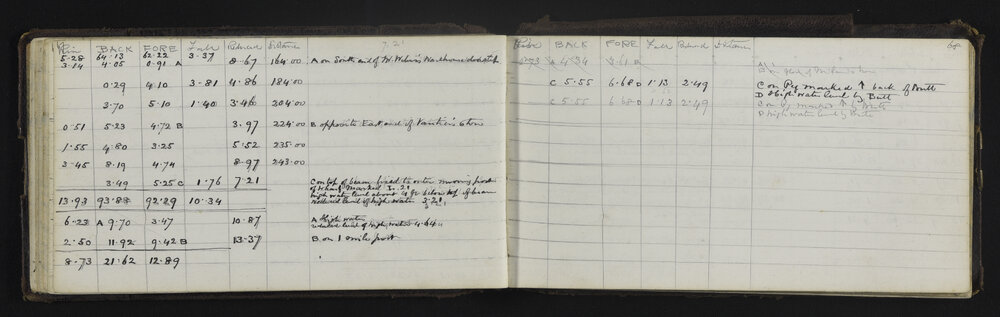 Rise BACK FORE Fall Reduced Distance 7.21
5.28 64.13 62.22 3.37
3.14 4.05 0.91 A 8.67 164.00 A on South end of Mr Warehouse doorstep
0.29 4.10 3.81 4.86 184.00
3.70 5.10 1.40 3.46 204.00
0.51 5.23 4.72 B 3.97 224.00 B opposite East end of Store
1.55 4.80 3.25 5.52 235.00
3.45 8.19 4.74 8.97 243.00
3.49 5.25 C 1.76 7.21 C on top of beam fixed to outer mooring post
of Wharf Marked 7.21
13.93 93.88 92.29 10.34 high water level about 4 ft below top of beam
reduced level of high water 3.21
6.23 A 9.70 3.47 10.87 A High water
reduced level of high water 4.64
2.50 11.92 9.42 B 13.37 B on 1 mile post
8.73 21.62 12.89
Rise BACK FORE Fall Reduced Distance 68
0.73 A 4.34 3.61 B
C 5.55 6.68 D 1.13 2.49 C on Peg marked ↑ back of Butt
D High water level by Butt
C 5.55 6.68 D 1.13 2.49 C on peg marked ↑ by Butt
D High water level by Butt